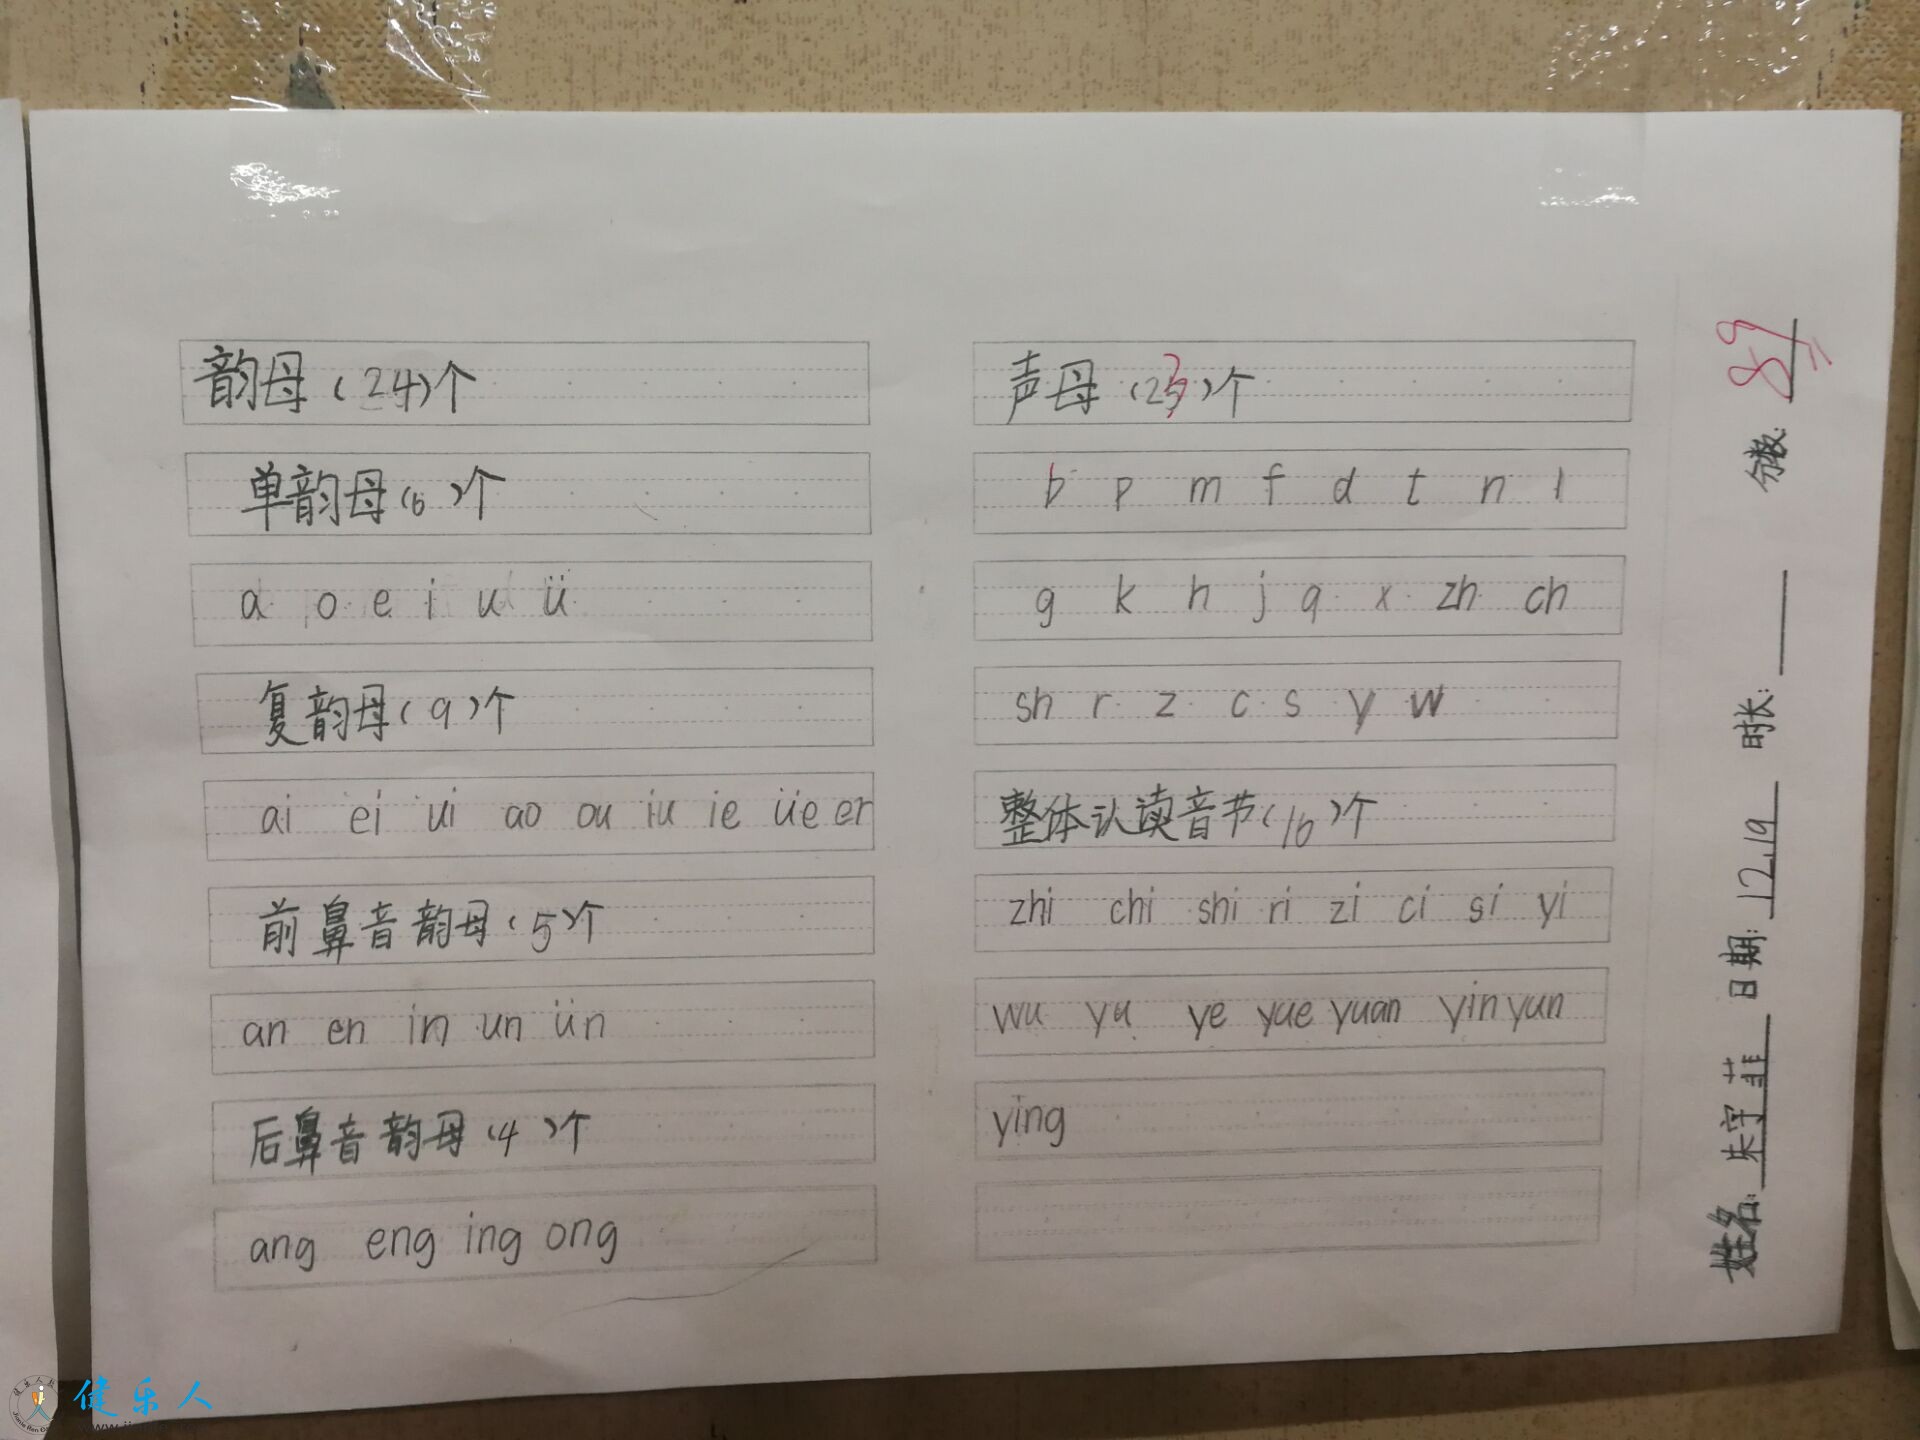 韵母(24)个
单韵母(6)个
a o e i u ü
复韵母(9)个
ai ei ui ao ou iu ie üe er
前鼻音韵母(5)个
an en in un ün
后鼻音韵母(4)个
ang eng ing ong
声母(23)个
b p m f d t n l
g k h j q x zh ch
sh r z c s y w
整体认读音节(16)个
zhi chi shi ri zi ci si yi
wu yu ye yue yuan yin yun
ying
姓名: 朱宇菲 日期: 12.19 时长: 分数: 89
健乐人